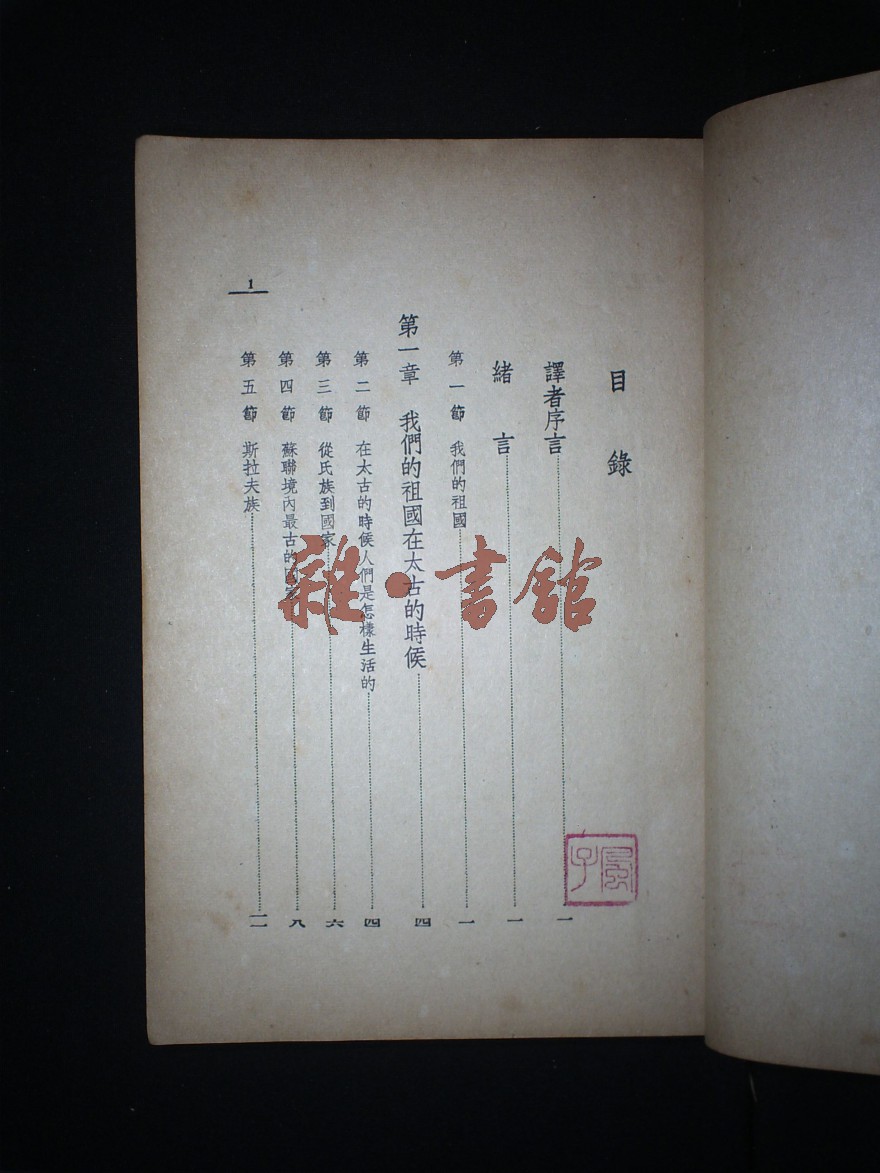 目錄
譯者序言……一
緒言……一
第一節 我們的祖國……一
第一章 我們的祖國在太古的時候……四
第二節 在太古的時候人們是怎樣生活的……四
第三節 從氏族到國家……六
第四節 蘇聯境內最古的國家……八
第五節 斯拉夫族……一一
1
雜·書館